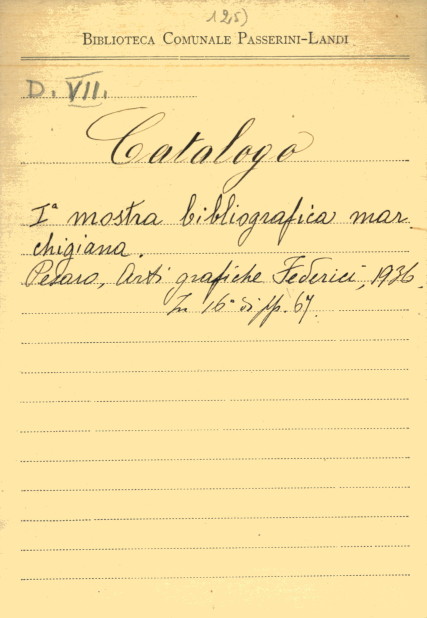 125)
BIBLIOTECA COMUNALE PASSERINI-LANDI
D. VII.
Catalogo
Iª mostra bibliografica mar-
chigiana.
Pesaro, Arti grafiche Federici, 1936.
In 16° di pp. 67.